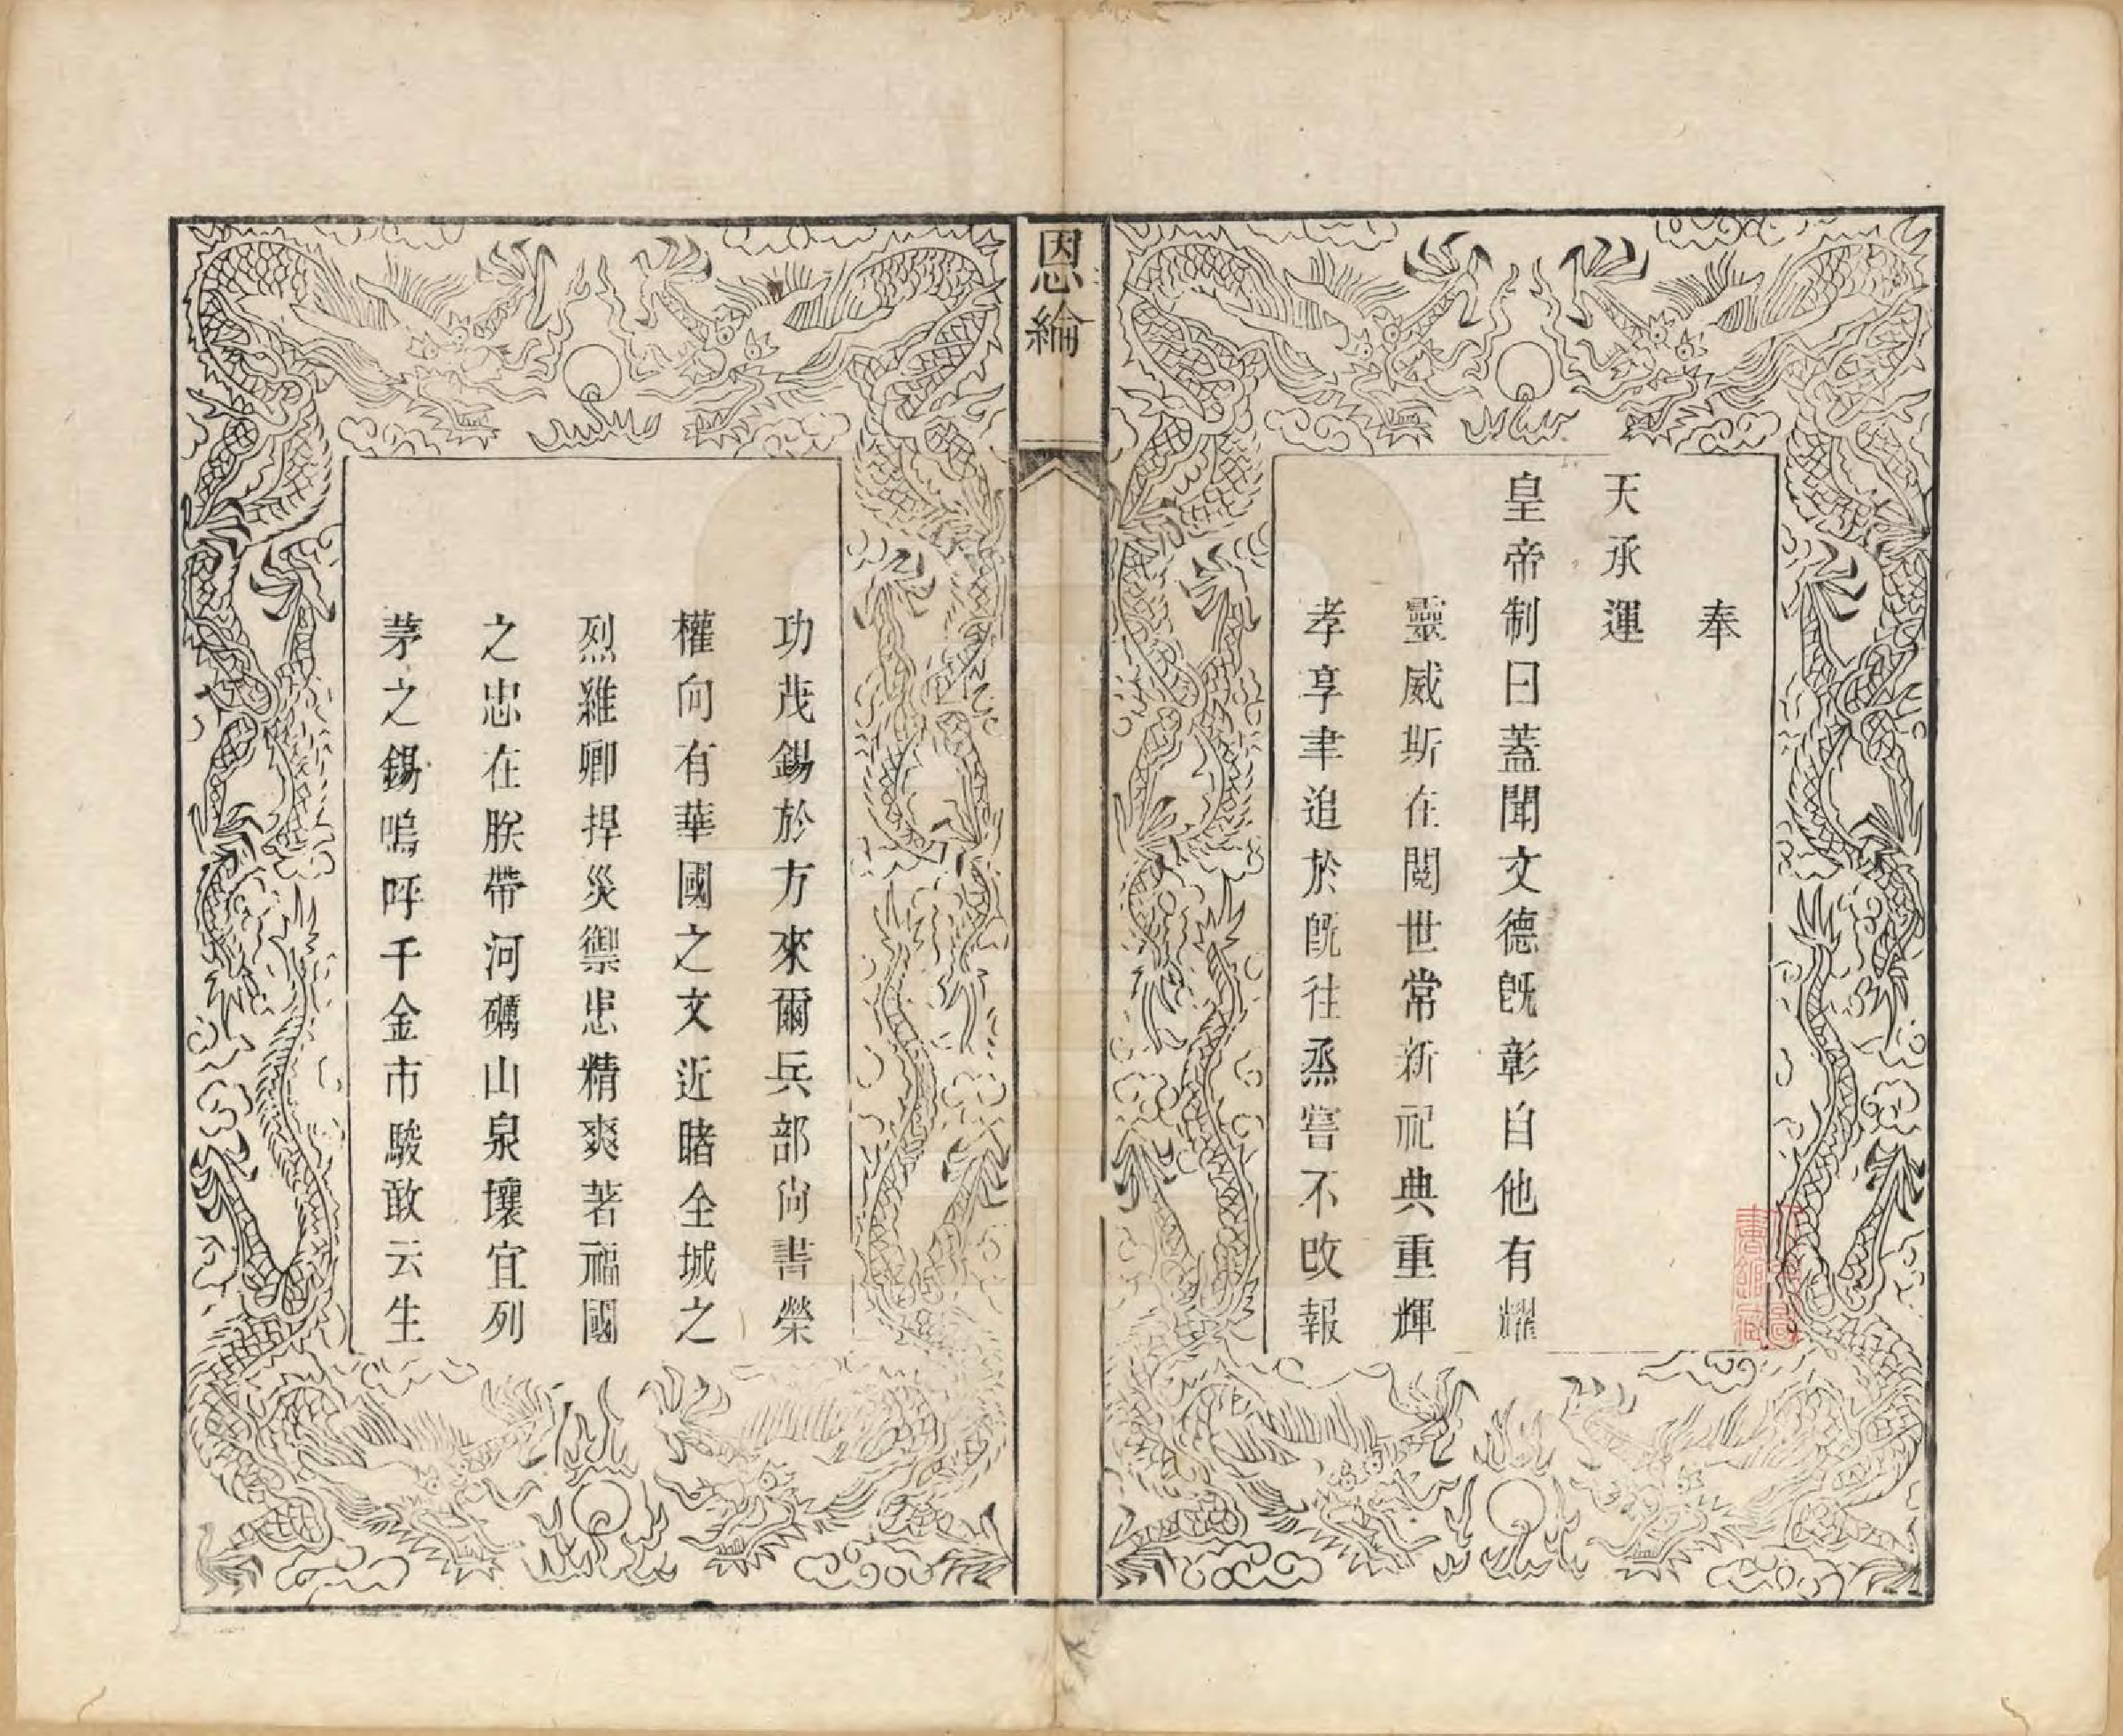 奉
天承運
皇帝制曰蓋聞文德旣彰自他有耀
靈威斯在閱世常新祀典重輝
孝享聿追於旣往烝嘗不改報
恩綸
功茂錫於方來爾兵部尚書榮
權向有華國之文近睹全城之
烈雖卿捍災禦患精爽著福國
之忠在朕帶河礪山泉壤宜列
茅之錫嗚呼千金市駿敢云生